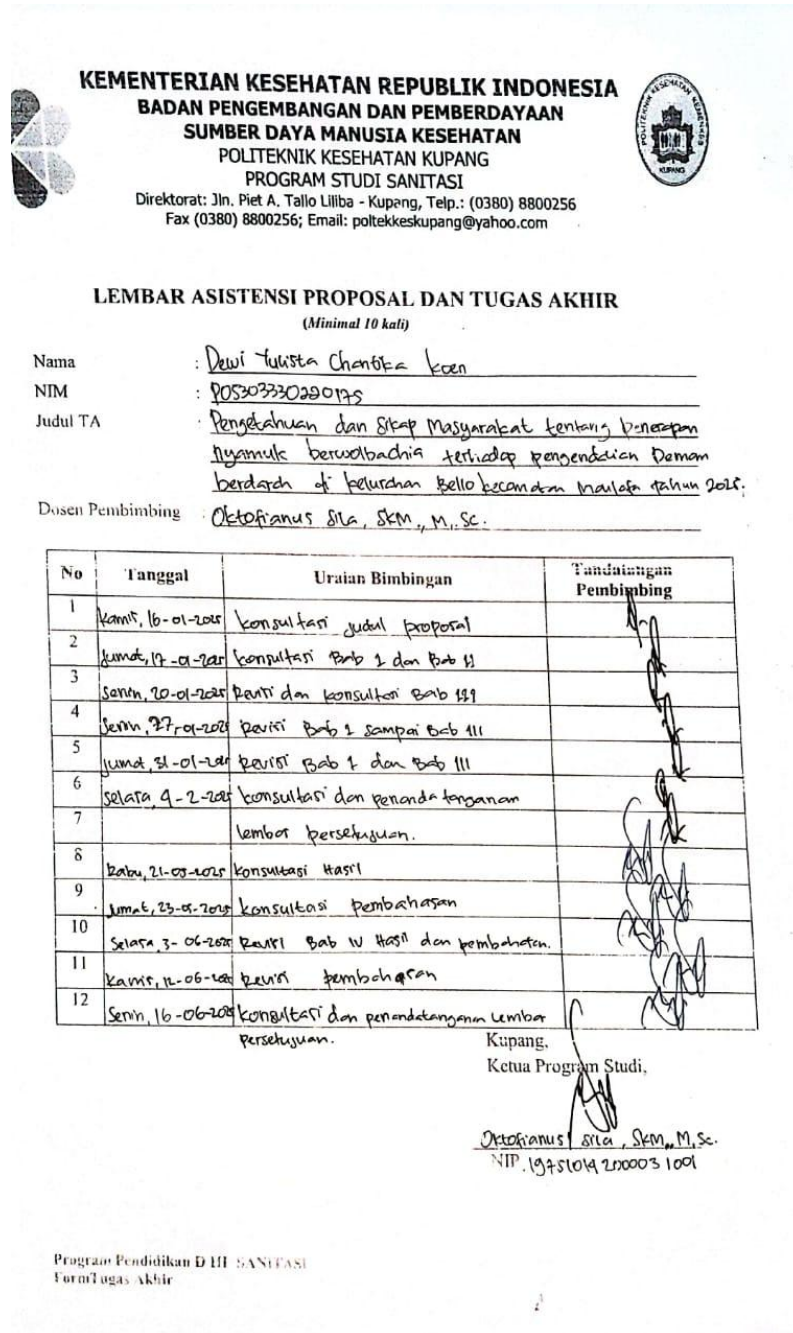 KEMENTERIAN KESEHATAN REPUBLIK INDONESIA
BADAN PENGEMBANGAN DAN PEMBERDAYAAN
SUMBER DAYA MANUSIA KESEHATAN
POLITEKNIK KESEHATAN KUPANG
PROGRAM STUDI SANITASI
Direktorat: Jln. Piet A. Tallo Liliba - Kupang, Telp.: (0380) 8800256
Fax (0380) 8800256; Email: poltekkeskupang@yahoo.com
POLITEKNIK KESEHATAN KEMENKES
KUPANG
LEMBAR ASISTENSI PROPOSAL DAN TUGAS AKHIR
(Minimal 10 kali)
Nama : Dewi Yulista Chantika Koen
NIM : PO5303330220175
Judul TA : Pengetahuan dan Sikap Masyarakat tentang penerapan
nyamuk berwolbachia terhadap pengendalian Demam
berdarah di kelurahan Bello kecamatan Maulafa tahun 2025.
Dosen Pembimbing : Oktofianus Sila, SKM., M,. Sc.
No Tanggal Uraian Bimbingan Tandatangan Pembimbing
1 Kamis, 16-01-2025 konsultasi judul proposal
2 Jumat, 17-01-2025 konsultasi Bab 1 dan Bab II
3 Senin, 20-01-2025 Revisi dan konsultasi Bab III
4 Senin, 27-01-2025 Revisi Bab 1 sampai Bab III
5 Jumat, 31-01-2025 Revisi Bab 1 dan Bab III
6 Selasa, 4-2-2025 konsultasi dan penanda tanganan
7 lembar persetujuan.
8 Rabu, 21-05-2025 konsultasi Hasil
9 Jumat, 23-05-2025 konsultasi pembahasan
10 Selasa, 3-06-2025 Revisi Bab IV Hasil dan pembahasan.
11 Kamis, 12-06-2025 Revisi pembahasan
12 Senin, 16-06-2025 konsultasi dan penandatanganan lembar
persetujuan.
Kupang,
Ketua Program Studi,
Oktofianus Sila, SKM,, M, Sc.
NIP. 197510142000031001
Program Pendidikan D III SANITASI
Form Tugas Akhir